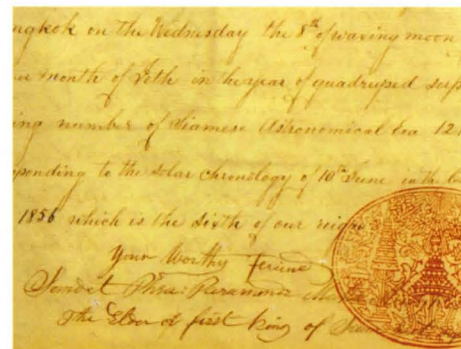 ngkok on the Wednesday the 8th of waxing moon
month of in the year of quadruped
ing number of Siamese Astronomical Era 12
ponding to the solar chronology of 10th June in the
1856 which is the sixth of our reign
Your Worthy
Somdet Phra Paramendr
The Elder & first King of